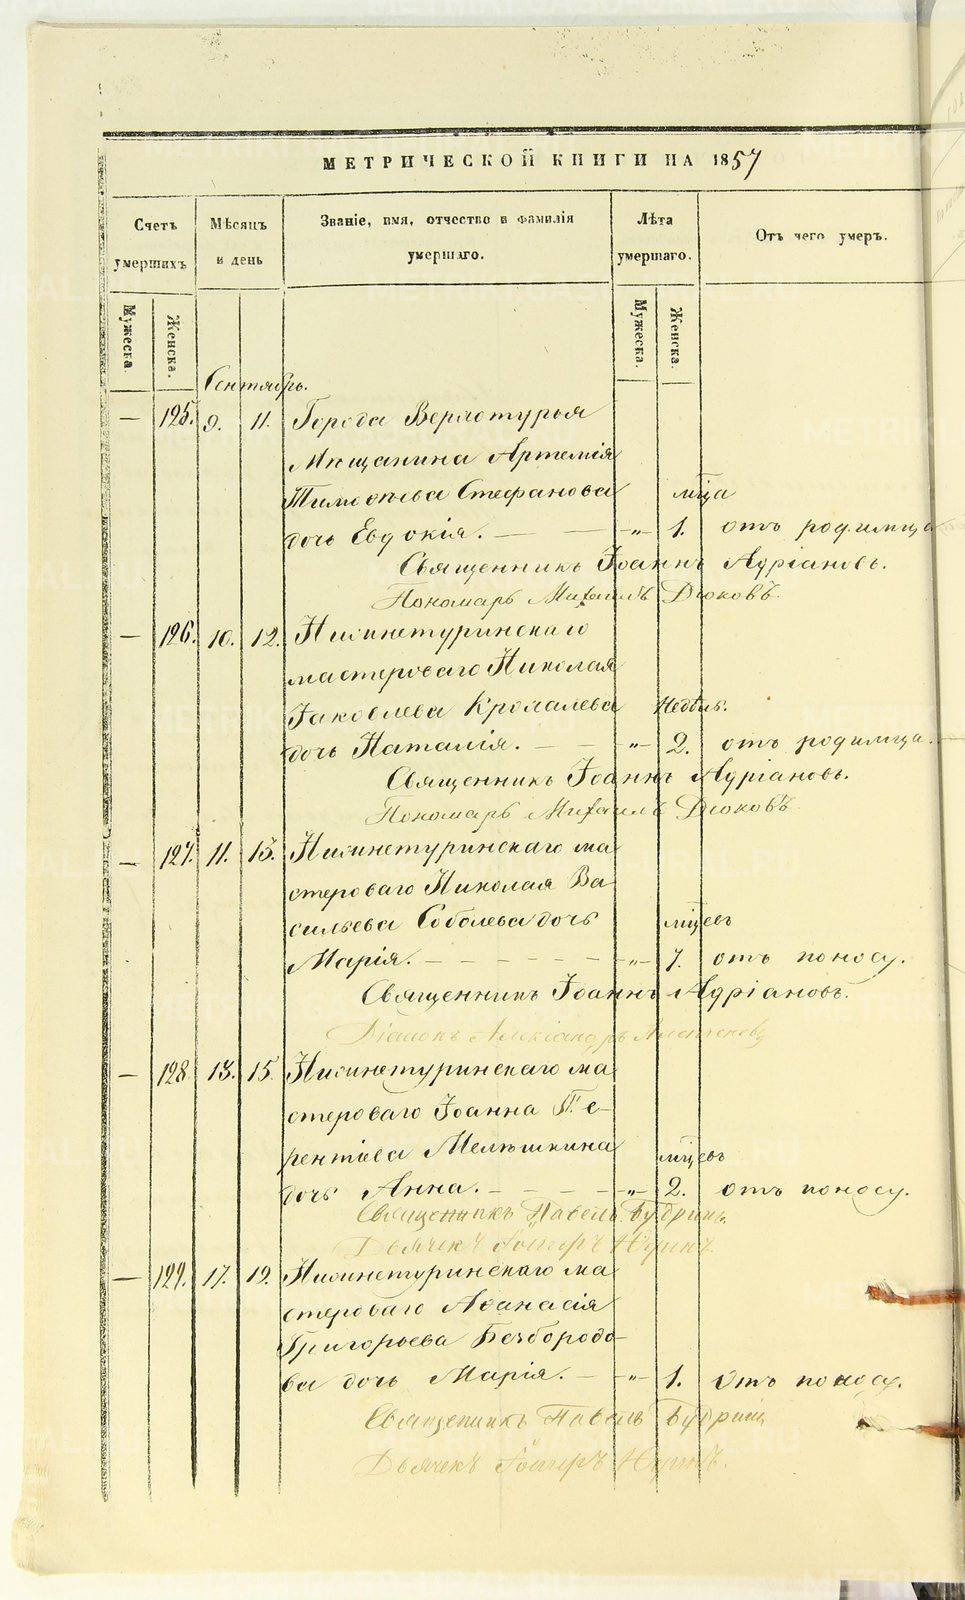 МЕТРИЧЕСКОЙ КНИГИ НА 1857
Счетъ умершихъ
Мѣсяцъ и день
Званіе, имя, отчество и фамилія умершаго.
Лѣта умершаго.
Отъ чего умеръ.
Мужеска.
Женска.
Мужеска.
Женска.
Сентябрь.
— 125. 9. 11. Города Верхотурья
Мѣщанина Артемія
Тимоѳѣева Стефанова мца
дочь Евдокія. — — „ 1. отъ родимца
Священникъ Іоаннъ Адріановъ.
Пономарь Михаилъ Дюковъ.
— 126. 10. 12. Нижнетуринскаго
мастероваго Николая
Іаковлева Крохалева Недѣль.
дочь Наталія. — — „ 2. отъ родимца.
Священникъ Іоаннъ Адріановъ.
Пономарь Михаилъ Дюковъ.
— 127. 11. 13. Нижнетуринскаго ма
стероваго Николая Ва
сильева Соболева дочь мцевъ
Марія. — — — — — „ 7. отъ поносу.
Священникъ Іоаннъ Адріановъ.
Діаконъ Александръ
— 128 13. 15. Нижнетуринскаго ма
стероваго Іоанна Те-
рентіева Мелѣшкина мцевъ
дочь Анна. — — — — „ 2. отъ поносу.
Священникъ Павелъ Будринъ.
Дьячекъ
— 129. 17. 19. Нижнетуринскаго ма
стероваго Аѳанасія
Григорьева Безбородо-
ва дочь Марія. — — „ 1. Отъ поносу.
Священникъ Павелъ Будринъ
Дьячекъ